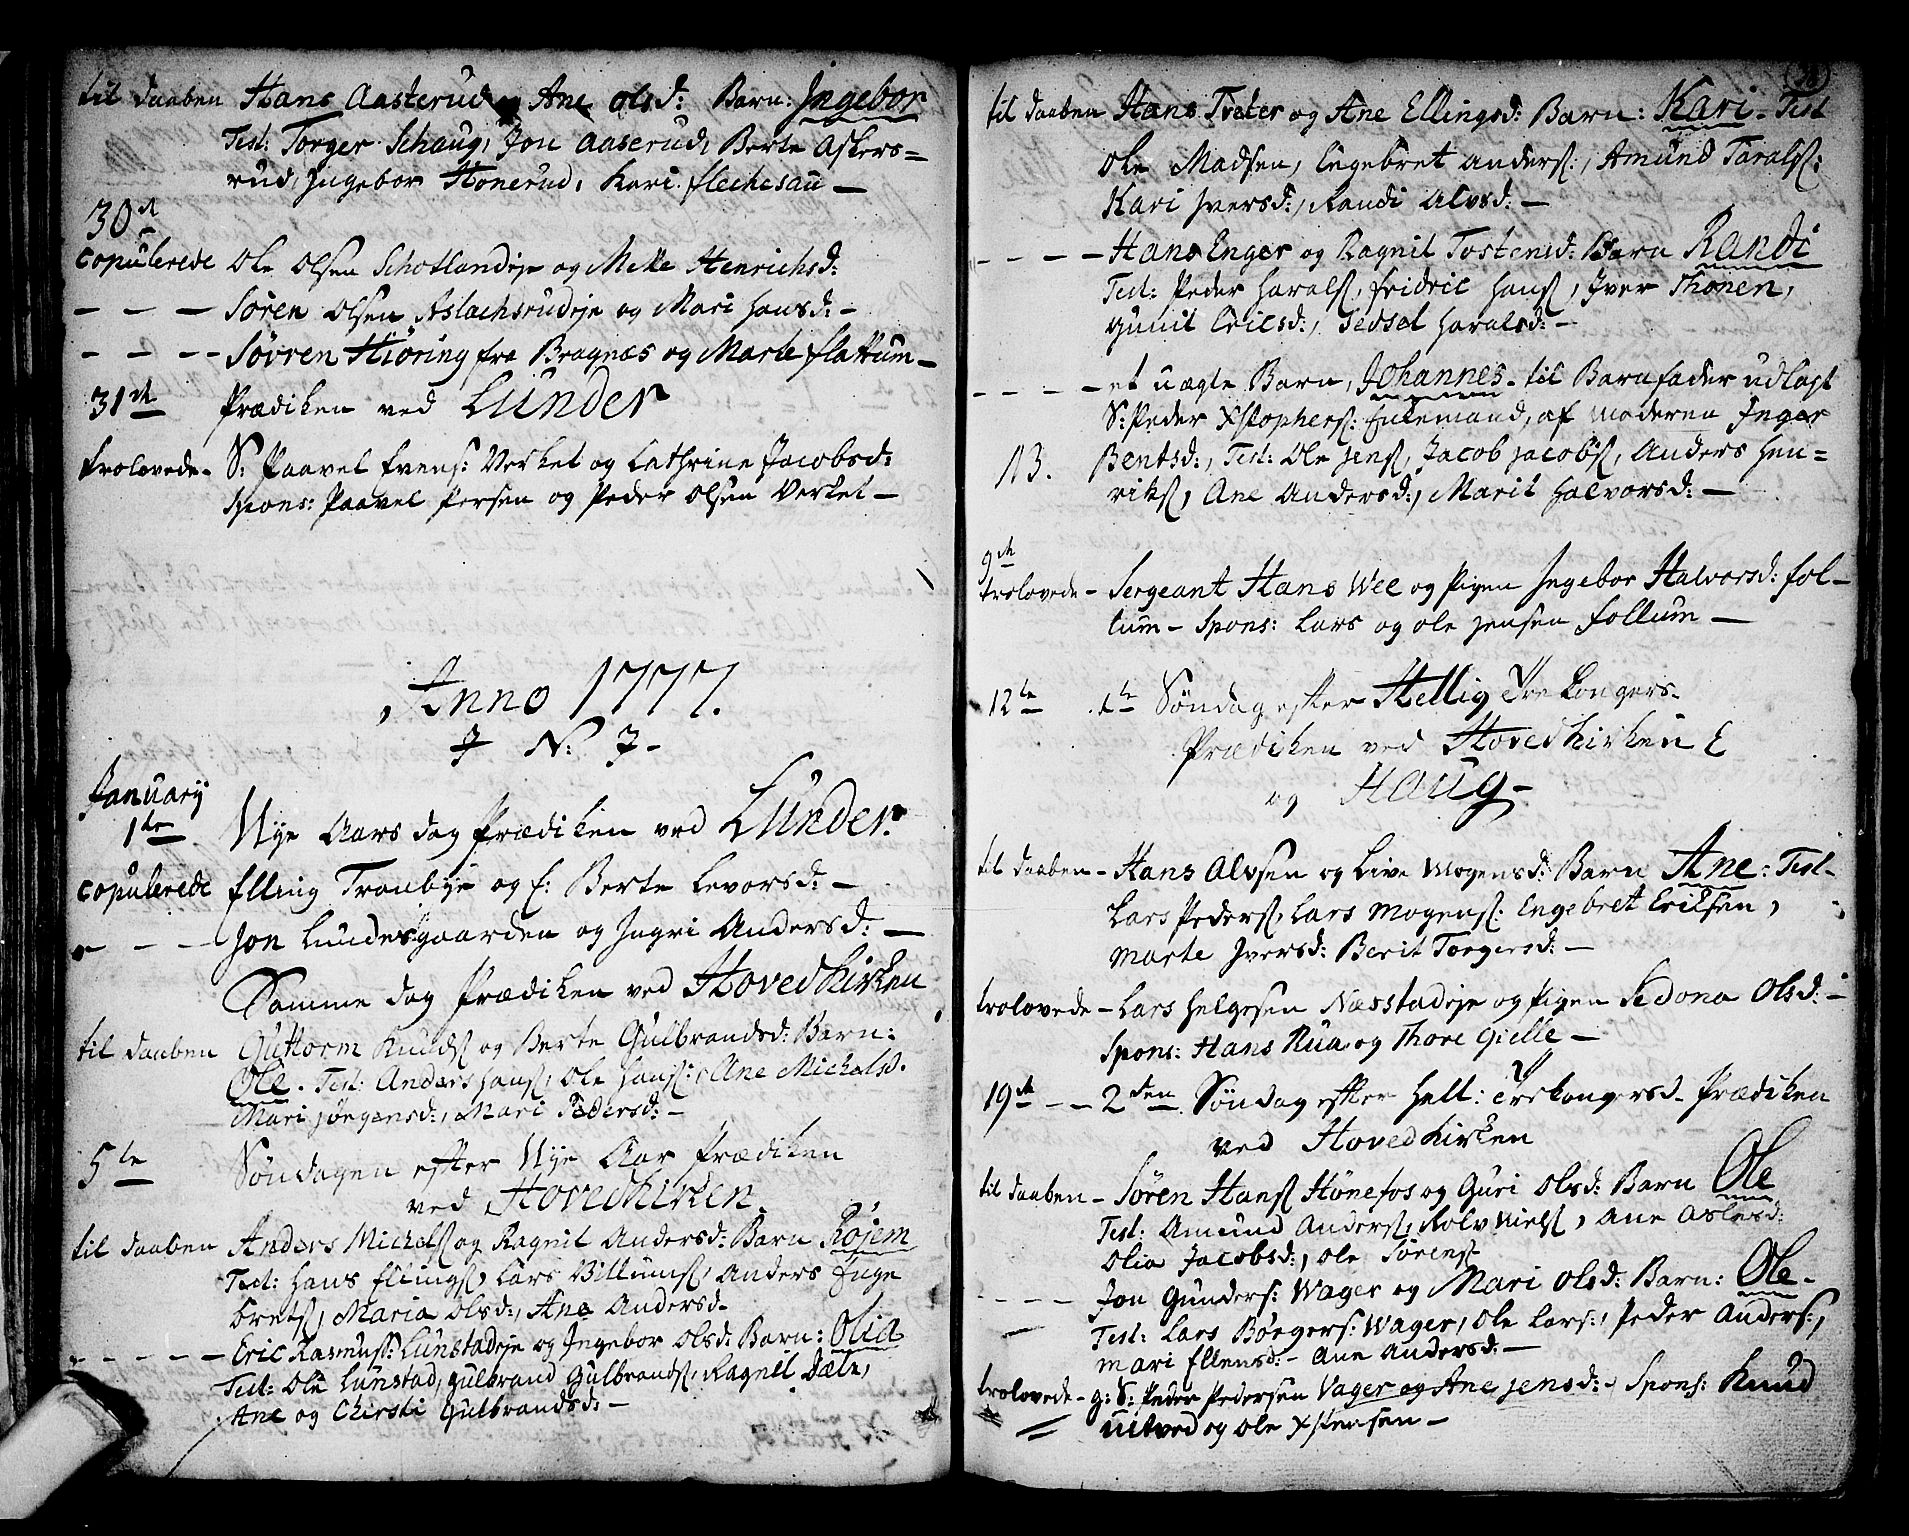 til daaben Hans Aasterud og Ane olsd: Barn: Ingebor
Test: Torger Schaug, Jon Aaserud, Berte Askers=
rud, Ingebor Hönerud, Kari flechesau —
30te
Copulerede Ole Olsen Schotlandeje og Mette Henrichsd:
— — — Sören Olsen Aslachsrudeje og Mari Hansd: —
— — — Sövren Hiöring fra Bragnæs og Marte flattum —
31te Prædiken ved Lunder
trolovede — S: Paavel Evens: Verket og Cathrine Jacobsd:
Spons: Paavel Persen og Peder Olsen Verket —
Anno 1777.
J N: J —
January
1te Nye Aars dag Prædiken ved Lunder.
Copulerede Elling Tronbye og E: Berte Levorsd: —
— — — Jon Lundesgaarden og Ingri Andersd: —
Samme dag Prædiken ved Hovedkirken
til daaben Guttorm Knuds og Berte Gulbrandsd: Barn:
Ole. Test: Anders Hans, Ole Hans:, Ane Michelsd.
Mari Jörgensd:, Mari Pedersd: —
5te Söndagen efter Nye Aar Prædiken
ved Hovedkirken.
til daaben Anders Michels og Ragnil Andersd: Barn Röjem
Test: Hans Ellings, Lars Villums, Anders Inge
brets, Maria Olsd:, Ane Andersd—
— — — — — Eric Rasmus: Lunstadeje og Ingebor Olsd: Barn: Olia
Test: Ole Lunstad, Gulbrand Gulbrands, Ragnil Dæle,
Ane og Chirsti Gulbrandsd: —
til daaben Hans Treter og Ane Ellingsd: Barn: Kari — Test
Ole Madsen, Engebret Anders:, Amund Tarals:
Kari Iversd:, Randi Alvsd: —
— — — — Hans Enger og Ragnil Tostensd: Barn Randi
Test: Peder Harals, Fridric Hans, Iver Thonen,
Gunil Ericsd:, Sedsel Haralsd: —
— — — — et uægte Barn, Johannes — til Barnfader udlagt
S: Peder Xstophers: Enkemand, af moderen Inger
N3. Bentsd:, Test: Ole Jens, Jacob Jacobs, Anders Hen=
riks, Ane Andersd:, Marit Halvorsd: —
9de
trolovede — Sergeant Hans Wee og Pigen Ingebor Halvorsd: fol—
tum — Spons: Lars og Ole Jensen Follum —
12te 1te Söndag efter Hellig Tre Konger s—
Prædiken ved Hovedkirken
og Haug —
til daaben — Hans Alvsen og Live Mogensd: Barn Ane: Test—
Lars Peders, Lars Mogens: Engebret Ericsen,
Marte Iversd: Berit Torgersd: —
trolovede — Lars Helgesen Næsstadeje og Pigen Sedona Olsd: —
Spons: Hans Rua og Thore Gielle —
19de — — 2den Söndag efter Hell: Trekongersd— Prædiken
ved Hovedkirken
til daaben — Sören Hans Hönefos og Guri Olsd: Barn Ole
Test: Amund Anders, Rolv Niels, Ane Aslesd:
Olia Jacobsd:, Ole Sörens
— — — — Jon Gunders: Wager og Mari Olsd: Barn: Ole —
Test: Lars Börgers: Wager, Ole Lars:, Peder Anders:,
Mari Ellensd: — Ane Andersd: —
trolovede — g: S: Peder Pedersen Vager og Ane Jensd: — Spons: Knud
uitved og Ole Xstensen —